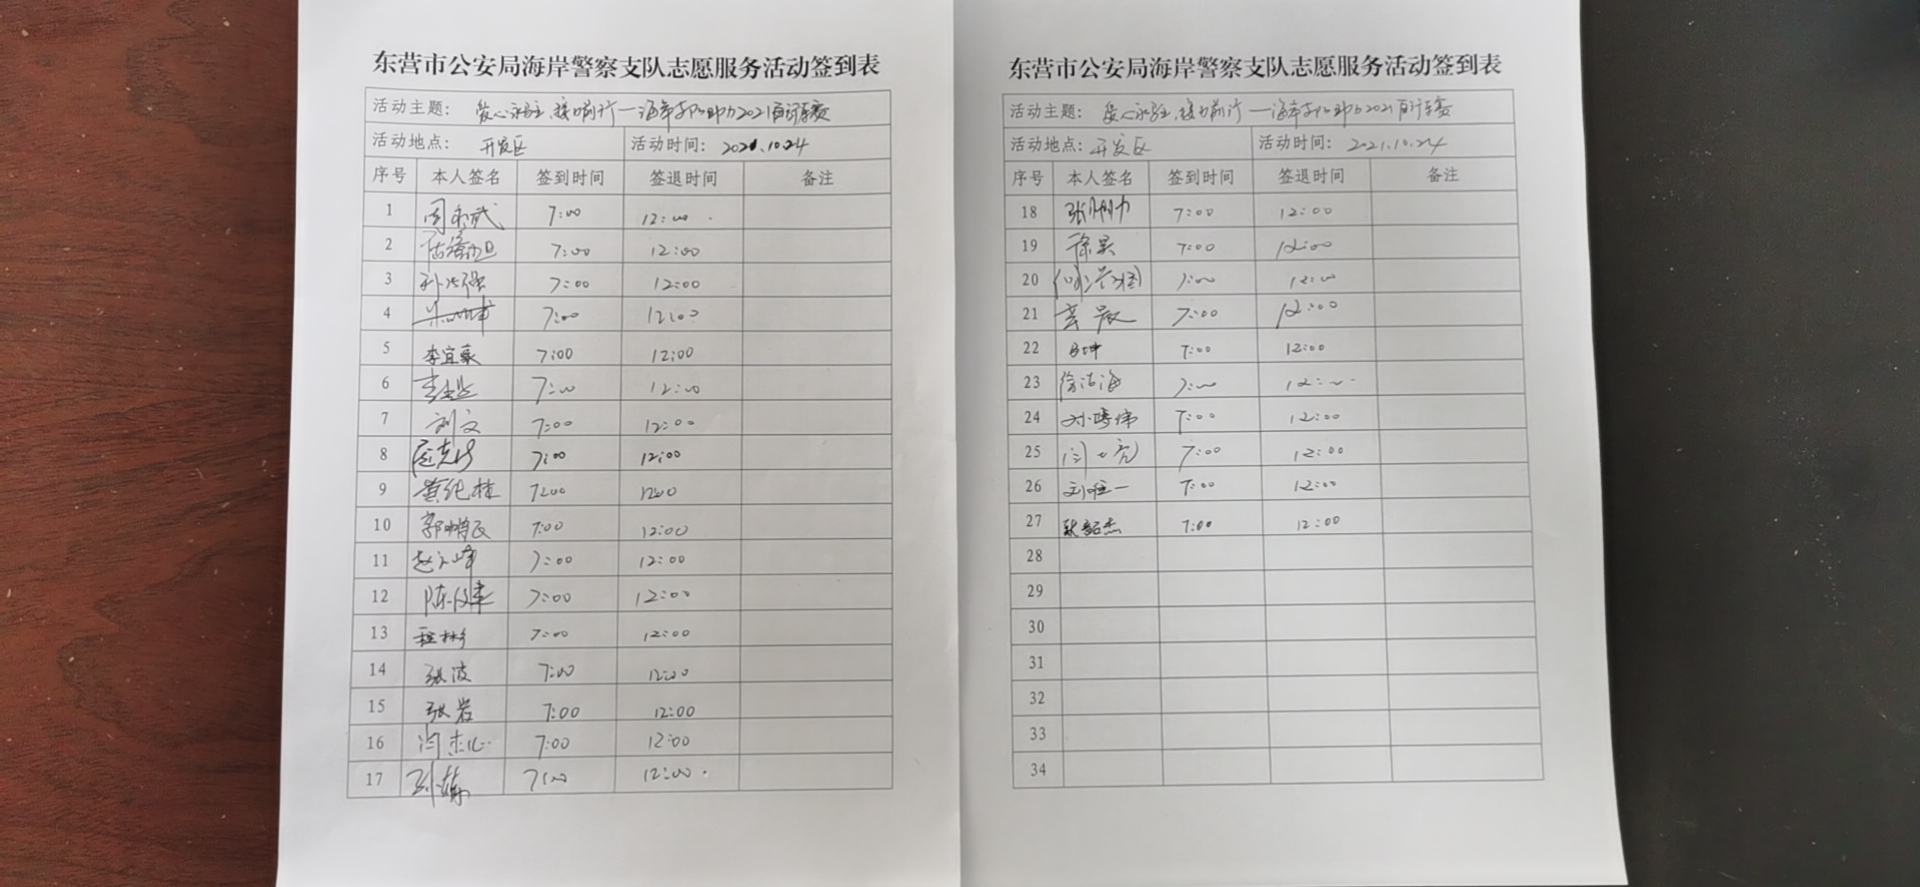 东营市公安局海岸警察支队志愿服务活动签到表
活动主题: 爱心永驻、接力前行—海岸支队助力2021自行车赛
活动地点: 开发区 活动时间: 2021.10.24
序号 本人签名 签到时间 签退时间 备注
1 7:00 12:00
2 7:00 12:00
3 孙兴强 7:00 12:00
4 7:00 12:00
5 李宜豪 7:00 12:00
6 7:00 12:00
7 刘文 7:00 12:00
8 7:00 12:00
9 黄纪栋 7:00 12:00
10 7:00 12:00
11 7:00 12:00
12 7:00 12:00
13 程彬 7:00 12:00
14 张波 7:00 12:00
15 张岩 7:00 12:00
16 7:00 12:00
17 7:00 12:00
东营市公安局海岸警察支队志愿服务活动签到表
活动主题: 爱心永驻、接力前行—海岸支队助力2021自行车赛
活动地点: 开发区 活动时间: 2021.10.24
序号 本人签名 签到时间 签退时间 备注
18 7:00 12:00
19 徐昊 7:00 12:00
20 7:00 12:00
21 7:00 12:00
22 7:00 12:00
23 徐洁海 7:00 12:00
24 7:00 12:00
25 7:00 12:00
26 刘唯一 7:00 12:00
27 耿韶杰 7:00 12:00
28
29
30
31
32
33
34